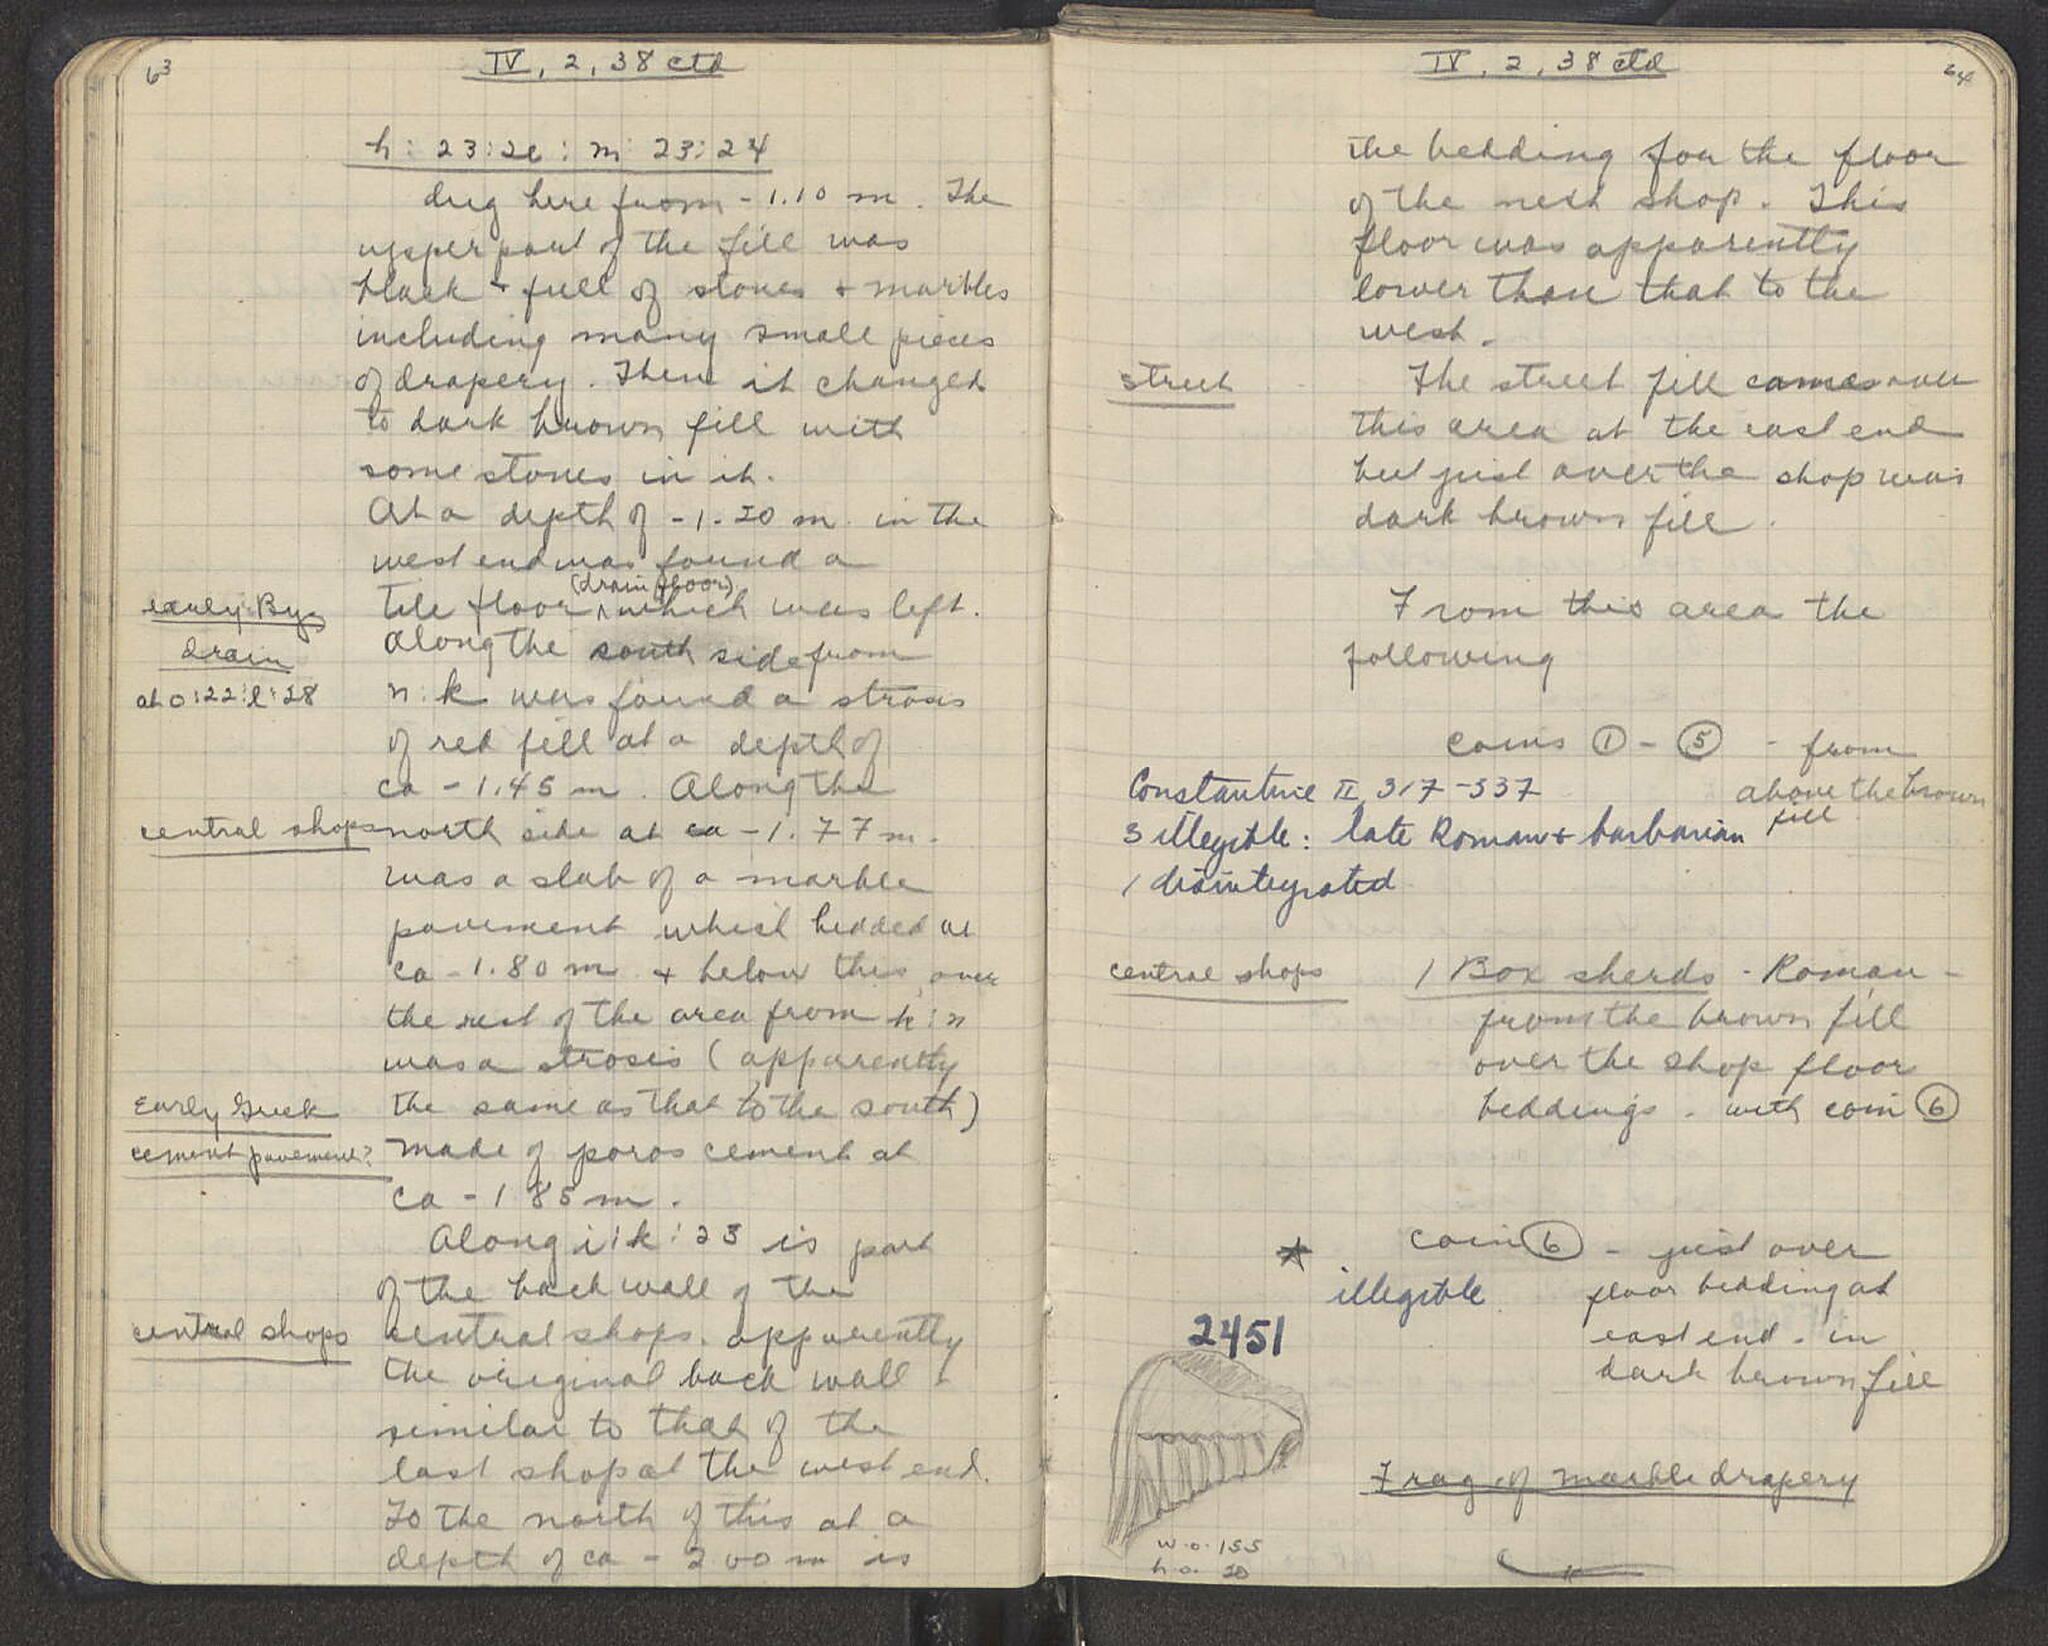 63
IV, 2, 38 ctd
h: 23:2e : m: 23:24
dug here from -1.10 m. The
upper part of the fill was
black + full of stones + marbles
including many small pieces
of drapery. Then it changed
to dark brown fill with
some stones in it.
At a depth of -1.20 m. in the
west end was found a
(drain floor)
early Byz
tile floor ^ which was left.
drain
along the south side from
at o:22:l:28
n:k was found a strosis
of red fill at a depth of
ca -1.45 m. Along the
central shops
north side at ca -1.77 m.
was a slab of a marble
pavement which bedded at
ca -1.80 m + below this, over
the rest of the area from k:n
was a strosis (apparently
Early Greek
the same as that to the south)
cement pavement?
made of poros cement at
ca -1 85 m.
Along i:k:23 is part
of the back wall of the
central shops
central shops. apparently
the original back wall -
similar to that of the
last shop at the west end.
To the north of this at a
depth of ca - 2 00 m is
64
IV, 2, 38 ctd
the bedding for the floor
of the next shop. This
floor was apparently
lower than that to the
west.
street
The street fill comes over
this area at the east end
but just over the shop was
dark brown fill.
From this area the
following
coins ① - ⑤ - from
above the brown
fill
Constantine II 317-337
3 illegible: late Roman + barbarian
1 disintegrated
central shops
1 Box sherds - Roman -
from the brown fill
over the shop floor
beddings. with coin ⑥
coin ⑥ - just over
illegible
floor bedding at
east end - in
dark brown fill
2451
Frag. of marble drapery
w. 0.155
h. 0. 20